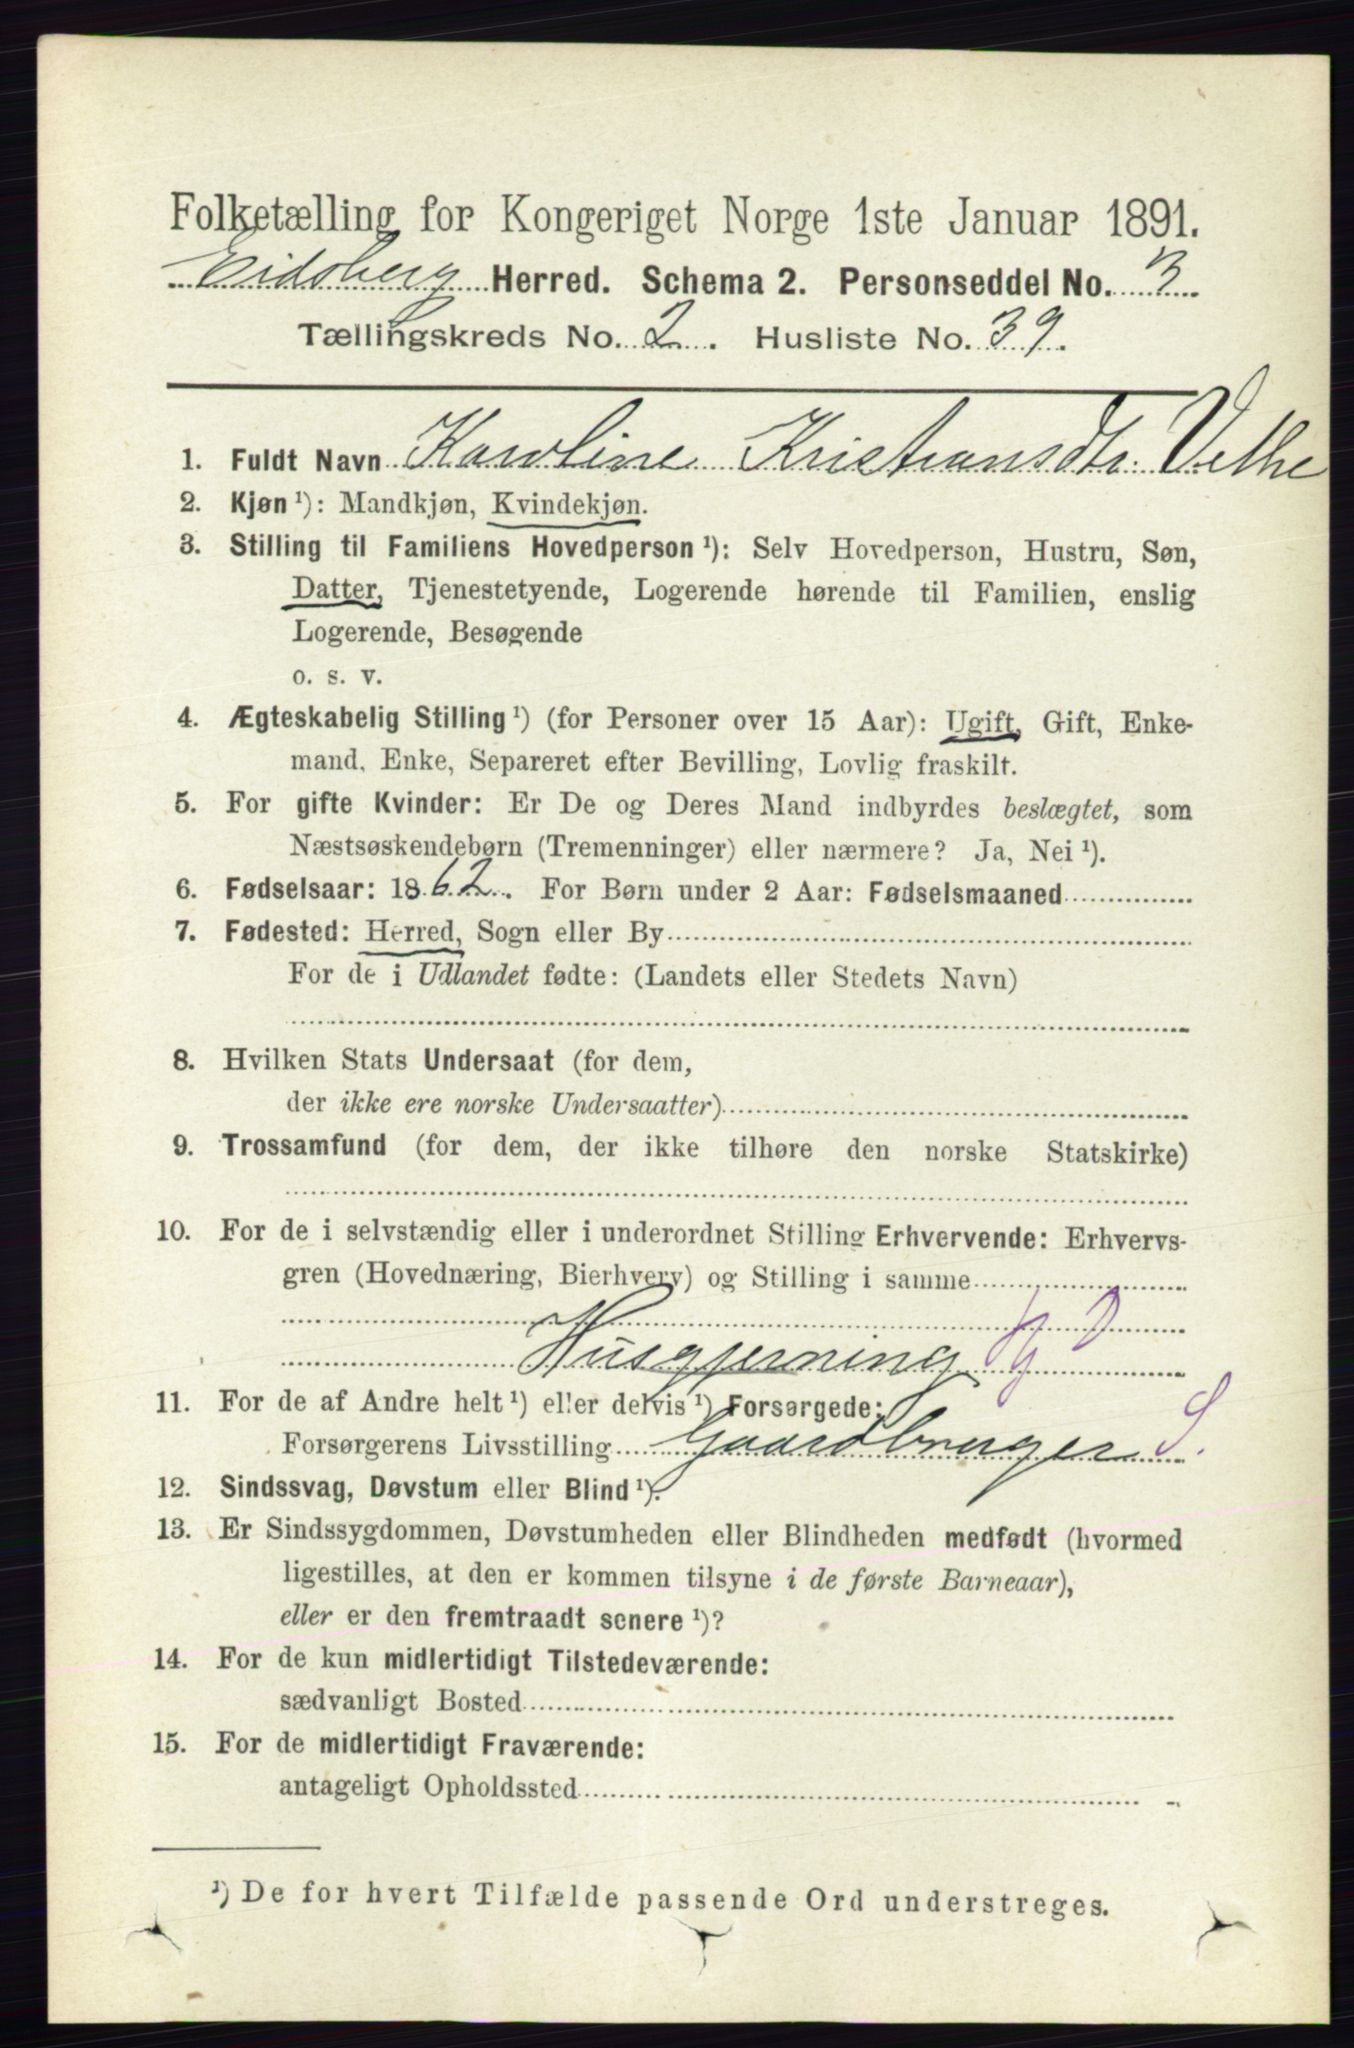 Folketælling for Kongeriget Norge 1ste Januar 1891.
Eidsberg Herred. Schema 2. Personseddel No. 3
Tællingskreds No. 2. Husliste No. 39.
1. Fuldt Navn Karoline Kristiansdtr. Vethe
2. Kjøn ¹): Mandkjøn, Kvindekjøn.
3. Stilling til Familiens Hovedperson ¹): Selv Hovedperson, Hustru, Søn,
Datter, Tjenestetyende, Logerende hørende til Familien, enslig
Logerende, Besøgende
o. s. v.
4. Ægteskabelig Stilling ¹) (for Personer over 15 Aar): Ugift, Gift, Enke-
mand, Enke, Separeret efter Bevilling, Lovlig fraskilt.
5. For gifte Kvinder: Er De og Deres Mand indbyrdes beslægtet, som
Næstsøskendebørn (Tremenninger) eller nærmere? Ja, Nei ¹).
6. Fødselsaar: 1862. For Børn under 2 Aar: Fødselsmaaned
7. Fødested: Herred, Sogn eller By
For de i Udlandet fødte: (Landets eller Stedets Navn)
8. Hvilken Stats Undersaat (for dem,
der ikke ere norske Undersaatter)
9. Trossamfund (for dem, der ikke tilhøre den norske Statskirke)
10. For de i selvstændig eller i underordnet Stilling Erhvervende: Erhvervs-
gren (Hovednæring, Bierhverv) og Stilling i samme
Husgjerning
11. For de af Andre helt ¹) eller delvis ¹) Forsørgede:
Forsørgerens Livsstilling Gaardbruger S.
12. Sindssvag, Døvstum eller Blind ¹).
13. Er Sindssygdommen, Døvstumheden eller Blindheden medfødt (hvormed
ligestilles, at den er kommen tilsyne i de første Barneaar),
eller er den fremtraadt senere ¹)?
14. For de kun midlertidigt Tilstedeværende:
sædvanligt Bosted
15. For de midlertidigt Fraværende:
antageligt Opholdssted
¹) De for hvert Tilfælde passende Ord understreges.